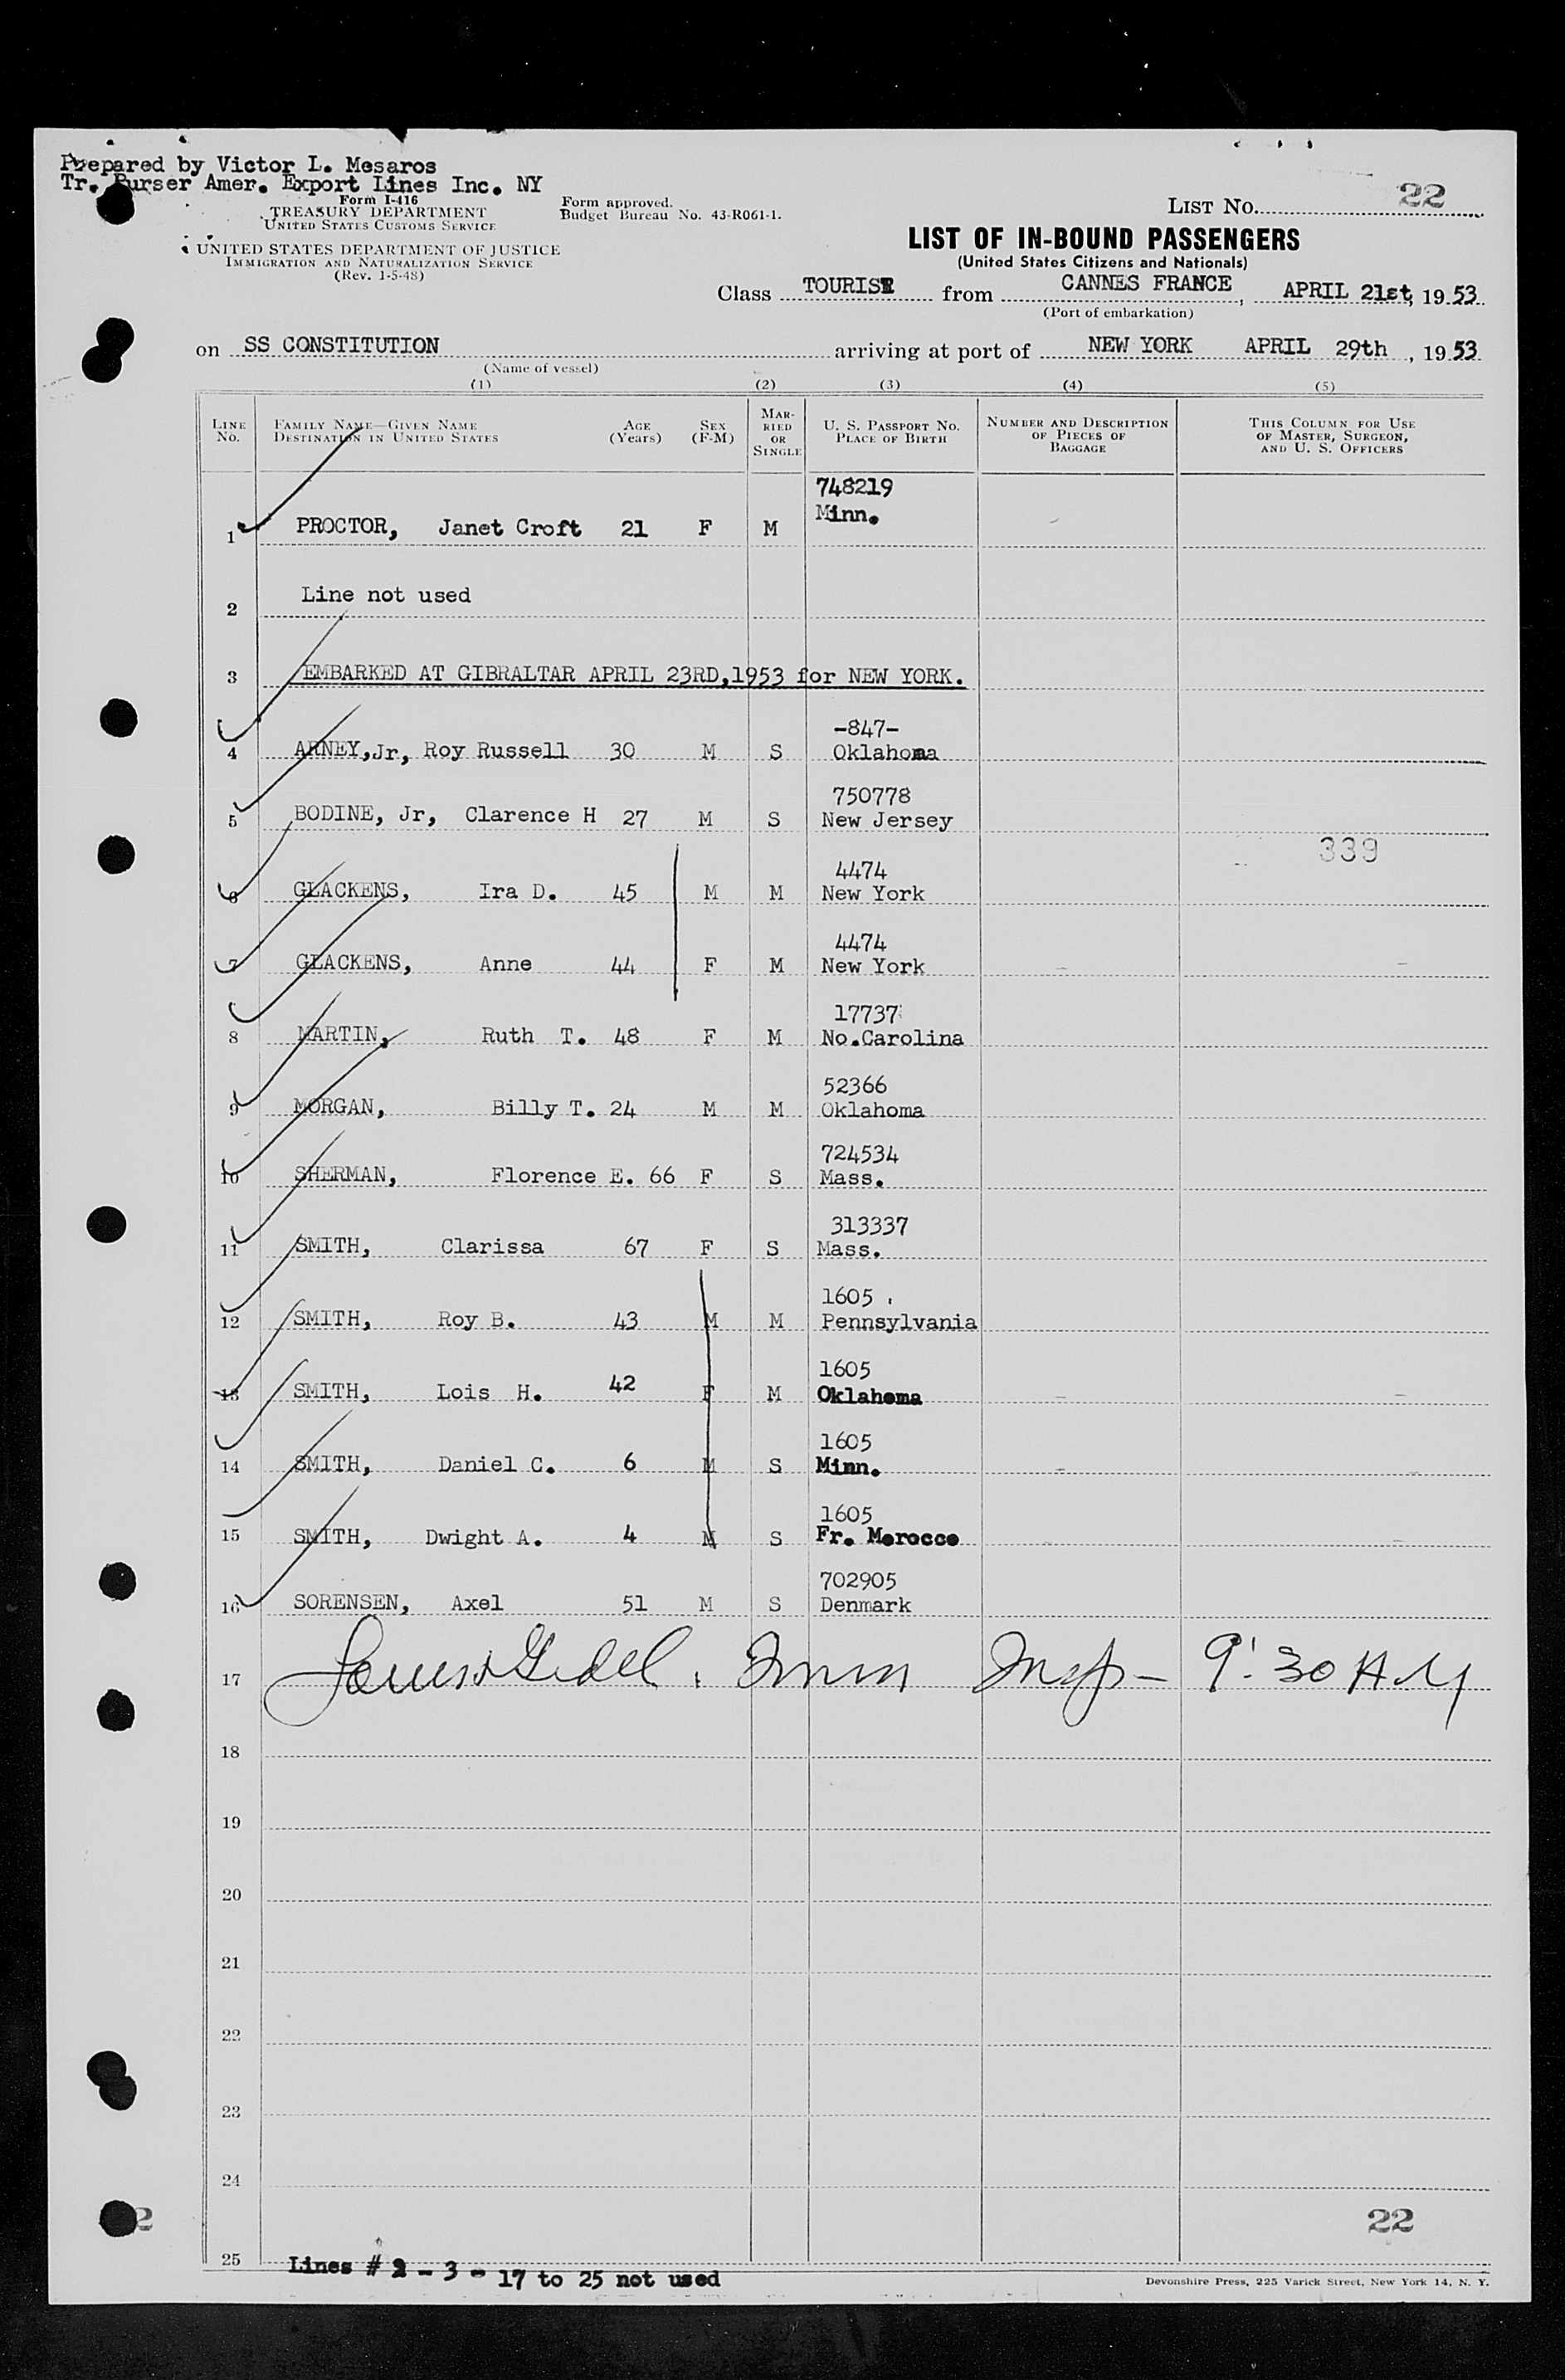 Prepared by Victor L. Mesaros
Tr. Purser Amer. Export Lines Inc. NY
Form I-416
TREASURY DEPARTMENT
UNITED STATES CUSTOMS SERVICE
UNITED STATES DEPARTMENT OF JUSTICE
IMMIGRATION AND NATURALIZATION SERVICE
(Rev. 1-5-48)
Form approved.
Budget Bureau No. 43-R061-1.
LIST NO. 22
LIST OF IN-BOUND PASSENGERS
(United States Citizens and Nationals)
Class TOURIST from CANNES FRANCE, APRIL 21st, 1953
(Port of embarkation)
on SS CONSTITUTION arriving at port of NEW YORK APRIL 29th, 1953
(Name of vessel)
(1) (2) (3) (4) (5)
LINE NO. FAMILY NAME—GIVEN NAME DESTINATION IN UNITED STATES AGE (Years) SEX (F-M) MARRIED OR SINGLE U. S. PASSPORT NO. PLACE OF BIRTH NUMBER AND DESCRIPTION OF PIECES OF BAGGAGE THIS COLUMN FOR USE OF MASTER, SURGEON, AND U. S. OFFICERS
748219
1 PROCTOR, Janet Croft 21 F M Minn.
2 Line not used
3 EMBARKED AT GIBRALTAR APRIL 23RD,1953 for NEW YORK.
-847-
4 ARNEY,Jr, Roy Russell 30 M S Oklahoma
750778
5 BODINE, Jr, Clarence H 27 M S New Jersey
339
4474
6 GLACKENS, Ira D. 45 M M New York
4474
7 GLACKENS, Anne 44 F M New York
17737
8 MARTIN, Ruth T. 48 F M No.Carolina
52366
9 MORGAN, Billy T. 24 M M Oklahoma
724534
10 SHERMAN, Florence E. 66 F S Mass.
313337
11 SMITH, Clarissa 67 F S Mass.
1605
12 SMITH, Roy B. 43 M M Pennsylvania
1605
13 SMITH, Lois H. 42 F M Oklahoma
1605
14 SMITH, Daniel C. 6 M S Minn.
1605
15 SMITH, Dwight A. 4 M S Fr. Morocco
702905
16 SORENSEN, Axel 51 M S Denmark
17 Insp- 9:30 AM
18
19
20
21
22
23
24
22
25
Lines # 2 - 3 - 17 to 25 not used
Devonshire Press, 225 Varick Street, New York 14, N. Y.